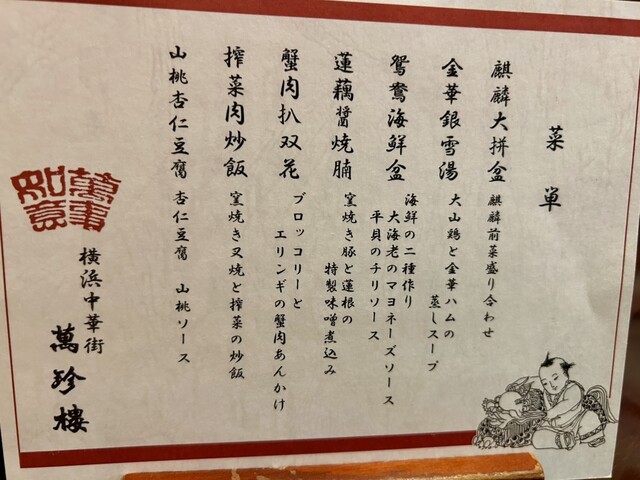 菜単
麒麟大拼盆
麒麟前菜盛り合わせ
金華銀雪湯
大山鶏と金華ハムの
蒸しスープ
鴛鴦海鮮盆
海鮮の二種作り
大海老のマヨネーズソース
平貝のチリソース
蓮藕醤焼腩
窯焼き豚と蓮根の
特製味噌煮込み
蟹肉扒双花
ブロッコリーと
エリンギの蟹肉あんかけ
搾菜肉炒飯
窯焼き叉焼と搾菜の炒飯
山桃杏仁豆腐
杏仁豆腐 山桃ソース
萬事
如意
横浜中華街
萬珍樓